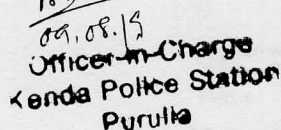 09.08.15
Officer-in-Charge
Kenda Police Station
Purulia